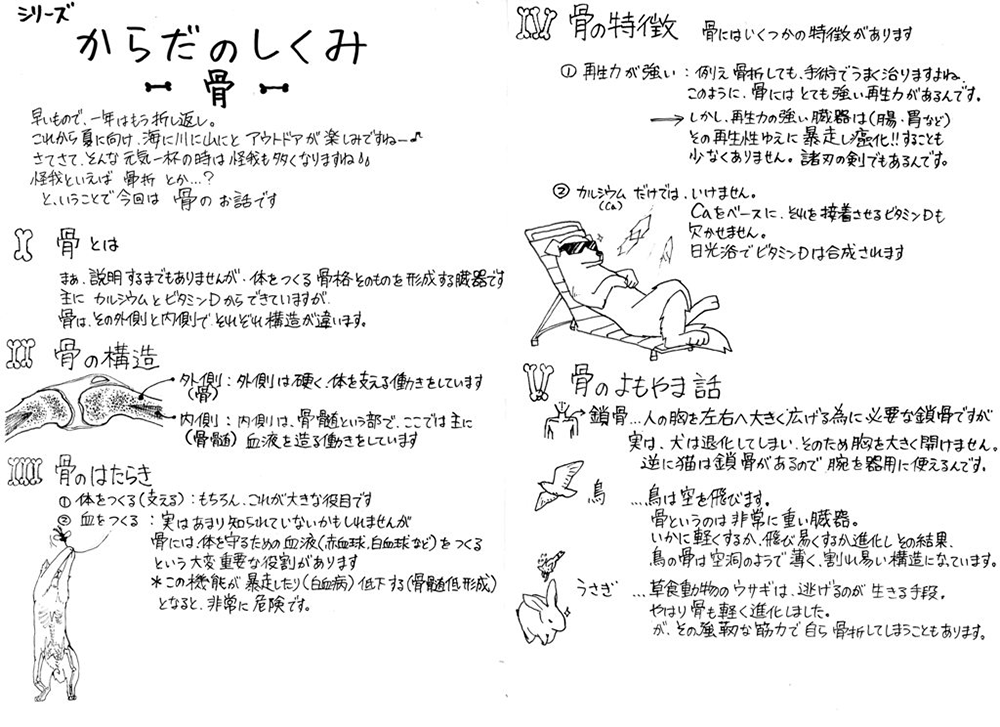 シリーズ
からだのしくみ
骨
早いもので、一年はもう折り返し。
これから夏に向け、海に川に山にと アウトドアが楽しみですねー♪
さてさて、そんな元気一杯の時は怪我も多くなりますね
怪我といえば 骨折 とか…?
と、いうことで今回は 骨の お話です
I 骨とは
まぁ、説明するまでもありませんが、体をつくる骨格そのものを形成する臓器です
主に カルシウムとビタミンDからできていますが、
骨は、その外側と内側で、それぞれ構造が違います。
II 骨の構造
外側：外側は硬く、体を支える働きをしています
(骨)
内側：内側は、骨髄という部で、ここでは主に
(骨髄) 血液を造る働きをしています
IIII 骨のはたらき
① 体をつくる(支える)：もちろん、これが大きな役目です
② 血をつくる：実はあまり知られていないかもしれませんが
骨には、体を守るための血液(赤血球、白血球など)をつくる
という大変重要な役割があります
*この機能が暴走したり(白血病)低下する(骨髄低形成)
となると、非常に危険です。
IV 骨の特徴 骨にはいくつかの特徴があります
① 再生力が強い：例え骨折しても、手術でうまく治りますよね、
このように、骨にはとても強い再生力があるんです。
→しかし、再生力の強い臓器は(腸、胃など)
その再生性ゆえに暴走し癌化!!することも
少なくありません。諸刃の剣でもあるんです。
② カルシウムだけでは、いけません。
(Ca)
Caをベースに、それを接着させるビタミンDも
欠かせません。
日光浴でビタミンDは合成されます
V 骨のよもやま話
鎖骨…人の胸を左右へ大きく広げる為に必要な鎖骨ですが
実は、犬は退化してしまい、そのため胸を大きく開けません。
逆に猫は鎖骨があるので腕を器用に使えるんです。
鳥 …鳥は空を飛びます。
骨というのは非常に重い臓器。
いかに軽くするか、飛び易くするか進化し その結果、
鳥の骨は空洞のようで薄く、割れ易い構造になっています。
うさぎ …草食動物のウサギは、逃げるのが生きる手段。
やはり骨も軽く進化しました。
が、その強靭な筋力で自ら骨折してしまうこともあります。